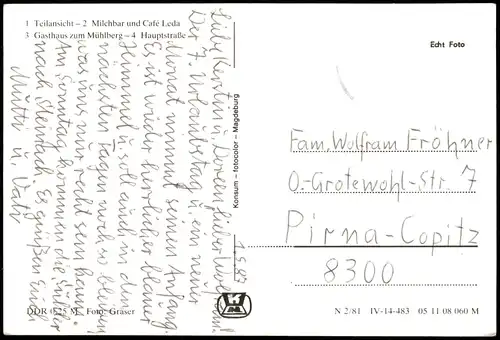 1 Teilansicht – 2 Milchbar und Café Leda
3 Gasthaus zum Mühlberg – 4 Hauptstraße
Echt Foto
Liebe Kerstin u. Doreen, lieber Wolfram!
Der 7. Urlaubstag u. ein neuer
Monat nimmt seinen Anfang.
Es ist wieder herrlicher blauer
Himmel u. soll auch in den
nächsten Tagen noch so bleiben
was uns nur recht sein kann.
Am Sonntag kommen die
nach Steinbach. Es grüßen Euch
Mutti u. Vati
1.9.83
Konsum – fotocolor – Magdeburg
Fam. Wolfram Fröhner
O.-Grotewohl-Str. 7
Pirna-Copitz
8300
DDR 0,25 M Foto: Gräser
N 2/81 IV-14-483 05 11 08 060 M